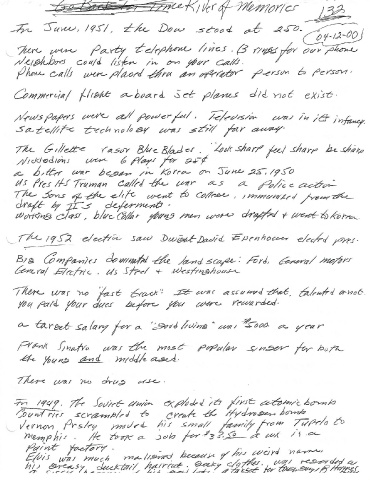 Go Back In Time River of Memories
132
(04-12-00)
In June, 1951, the Dow stood at 250.
There were Party telephone lines. (3 rings for our phone
Neighbors could listen in on your calls.
Phone calls were placed thru an operator person to person.
Commercial flight aboard Jet planes did not exist.
Newspapers were all powerful. Television was in its infancy.
Satellite technology was still far away.
The Gillette razor Blue Blades. "Look sharp feel sharp be sharp
Nickelodions were 6 plays for 25¢
a bitter war began in Korea on June 25, 1950
US Pres HS Truman called the war as a Police action
The Sons of the elite went to college, immunized from the
draft by II-S deferments.
working class, blue collar young men were drafted & went to Korea
The 1952 election saw Dwight David Eisenhower elected pres.
Big Companies dominated the landscape: Ford, General Motors
General Electric. US Steel & Westinghouse
There was no "fast track". It was assumed that, talented or not
you paid your dues before you were rewarded.
a target salary for a "good living" was $5000 a year
Frank Sinatra was the most popular singer for both
the young and middle aged.
There was no drug use.
In 1949, The Soviet Union exploded its first atomic bomb
Countries scrambled to create the Hydrogen bomb
Vernon Presley moved his small family from Tupelo to
Memphis. He took a job for a wk in a
Paint factory.
Elvis was much maligned because of his weird name
his greasy ducktail, haircut. clothes. was regarded as